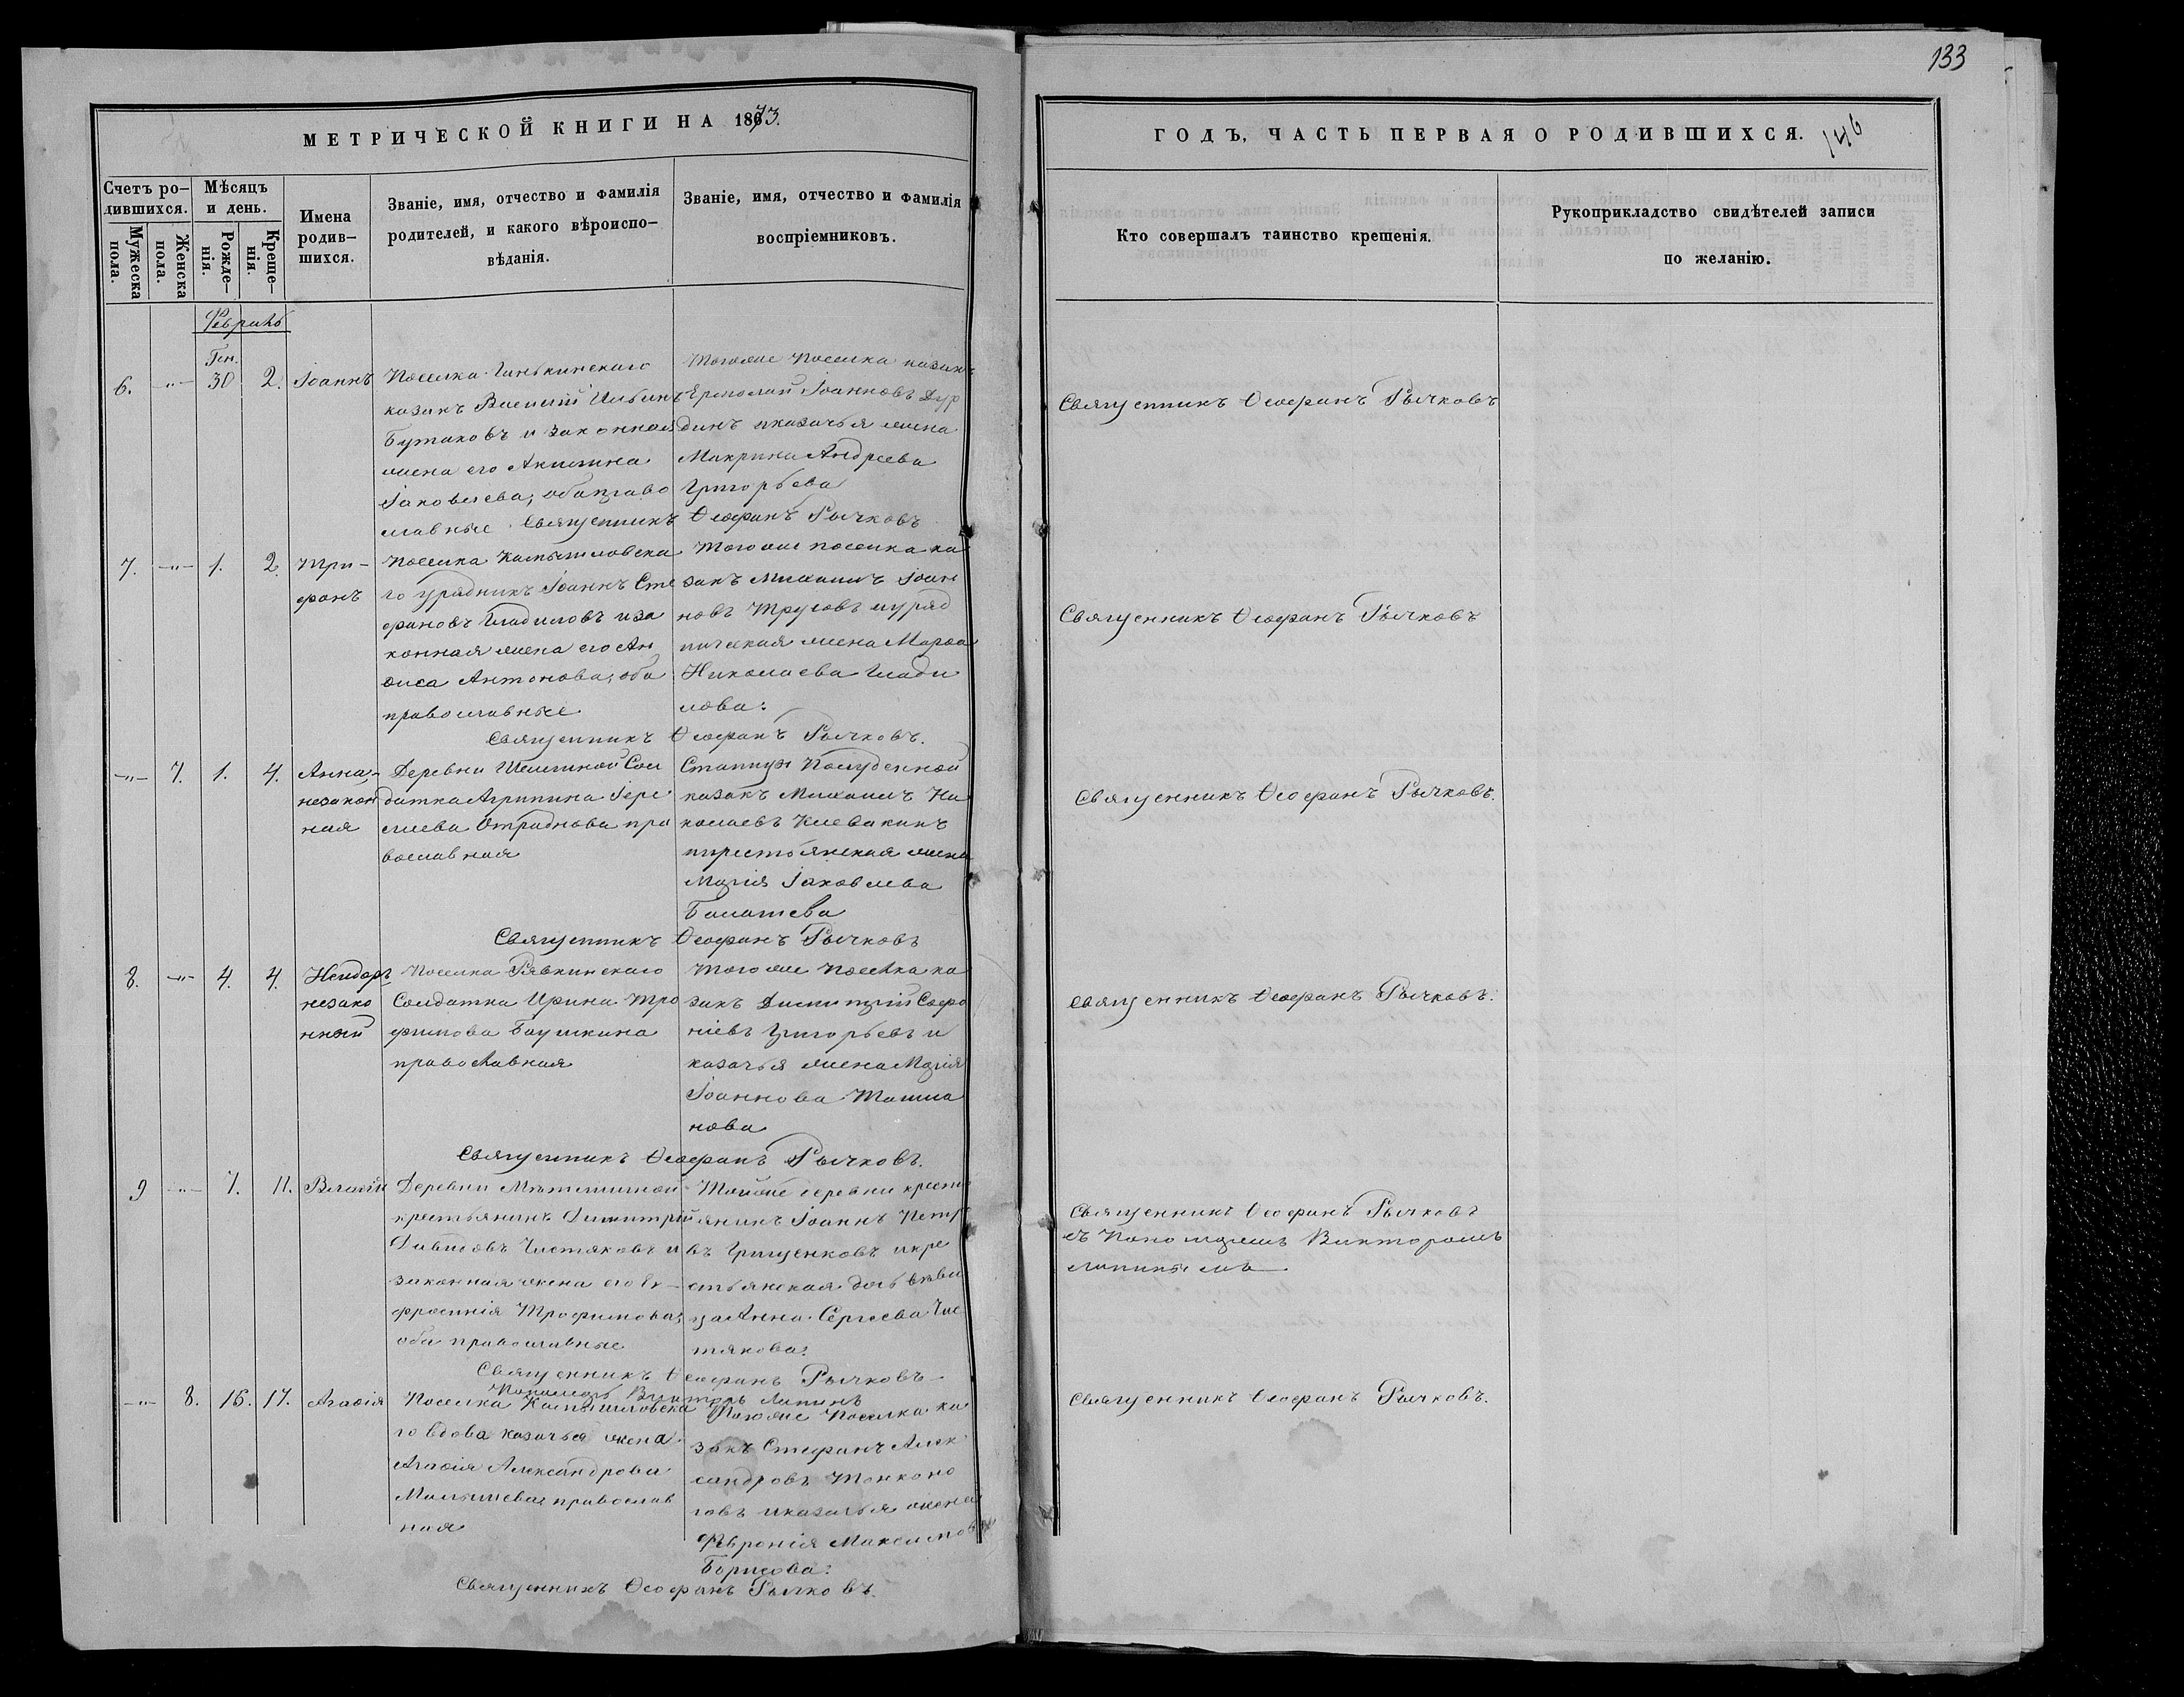 133
МЕТРИЧЕСКОЙ КНИГИ НА 1873.
ГОДЪ, ЧАСТЬ ПЕРВАЯ О РОДИВШИХСЯ.
146
Счетъ ро-
дившихся.
Мужеска
пола.
Женска
пола.
Мѣсяцъ
и день.
Рожде-
нія.
Креще-
нія.
Имена
родив-
шихся.
Званіе, имя, отчество и фамилія
родителей, и какого вѣроиспо-
вѣданія.
Званіе, имя, отчество и фамилія
воспріемниковъ.
Кто совершалъ таинство крещенія.
Рукоприкладство свидѣтелей записи
по желанію.
Февраль
Ген.
6. -"- 30 2. Іоаннъ
Поселка
казакъ Василій Ильинъ
Бутаковъ и законная
жена его Акилина
Іаковлева, оба право
славные
Тогоже поселка казакъ
Ермолай Іоанновъ Дур
динъ и казачья жена
Макрина Андреева
Григорьева
Священникъ Ѳеофанъ Рычковъ
Священникъ Ѳеофанъ Рычковъ
7. -"- 1. 2. Три-
фонъ
Поселка Камышловска
го урядникъ Іоаннъ Сте
фановъ Гладиловъ и за
конная жена его Ан
фиса Антонова, оба
православные
Тогоже поселка ка
закъ Михаилъ Іоан
новъ Трусовъ и уряд
ническая жена Марѳа
Николаева Глади
лова.
Священникъ Ѳеофанъ Рычковъ.
Священникъ Ѳеофанъ Рычковъ
-"- 7. 1. 4. Анна,
незакон
ная
Деревни Сол
датка Агрипина
Отраднова пра
вославная
Станицы Полуденной
казакъ Михаилъ Ни
колаевъ Клевакинъ
и крестьянская жена
Марія Іаковлева
Балашева
Священникъ Ѳеофанъ Рычковъ
Священникъ Ѳеофанъ Рычковъ.
8. -"- 4. 4. Исидоръ
незако
нный
Поселка Рявкинскаго
Солдатка Ирина Тро
фимова Баушкина
православная
Тогоже поселка ка
закъ Димитрій Софро
ніевъ Григорьевъ и
казачья жена Марія
Іоаннова Толма
чова
Священникъ Ѳеофанъ Рычковъ.
Священникъ Ѳеофанъ Рычковъ.
9 -"- 7. 11. Власій
Деревни
крестьянинъ Димитрій
Давидовъ Чистяковъ и
законная жена его Ев-
фросинія Трофимова,
оба православные
Тойже деревни кресть
янинъ Іоаннъ Петр
въ Грищенковъ и кре
стьянская дочь дѣви
ца Анна Сергѣева Чис
тякова.
Священникъ Ѳеофанъ Рычковъ
Пономарь Викторъ Лапинъ
Священникъ Ѳеофанъ Рычковъ
съ Пономаремъ Викторомъ
Лапинымъ
-"- 8. 16. 17. Агаѳія
Поселка Камышловска
го вдова казачья жена
Агаѳія Александрова
Малышева, православ
ная
Тогоже поселка ка
закъ Стефанъ Алек
сандровъ Тонконо
говъ и казачья жена
Февронія Максимова
Борисова.
Священникъ Ѳеофанъ Рычковъ.
Священникъ Ѳеофанъ Рычковъ.